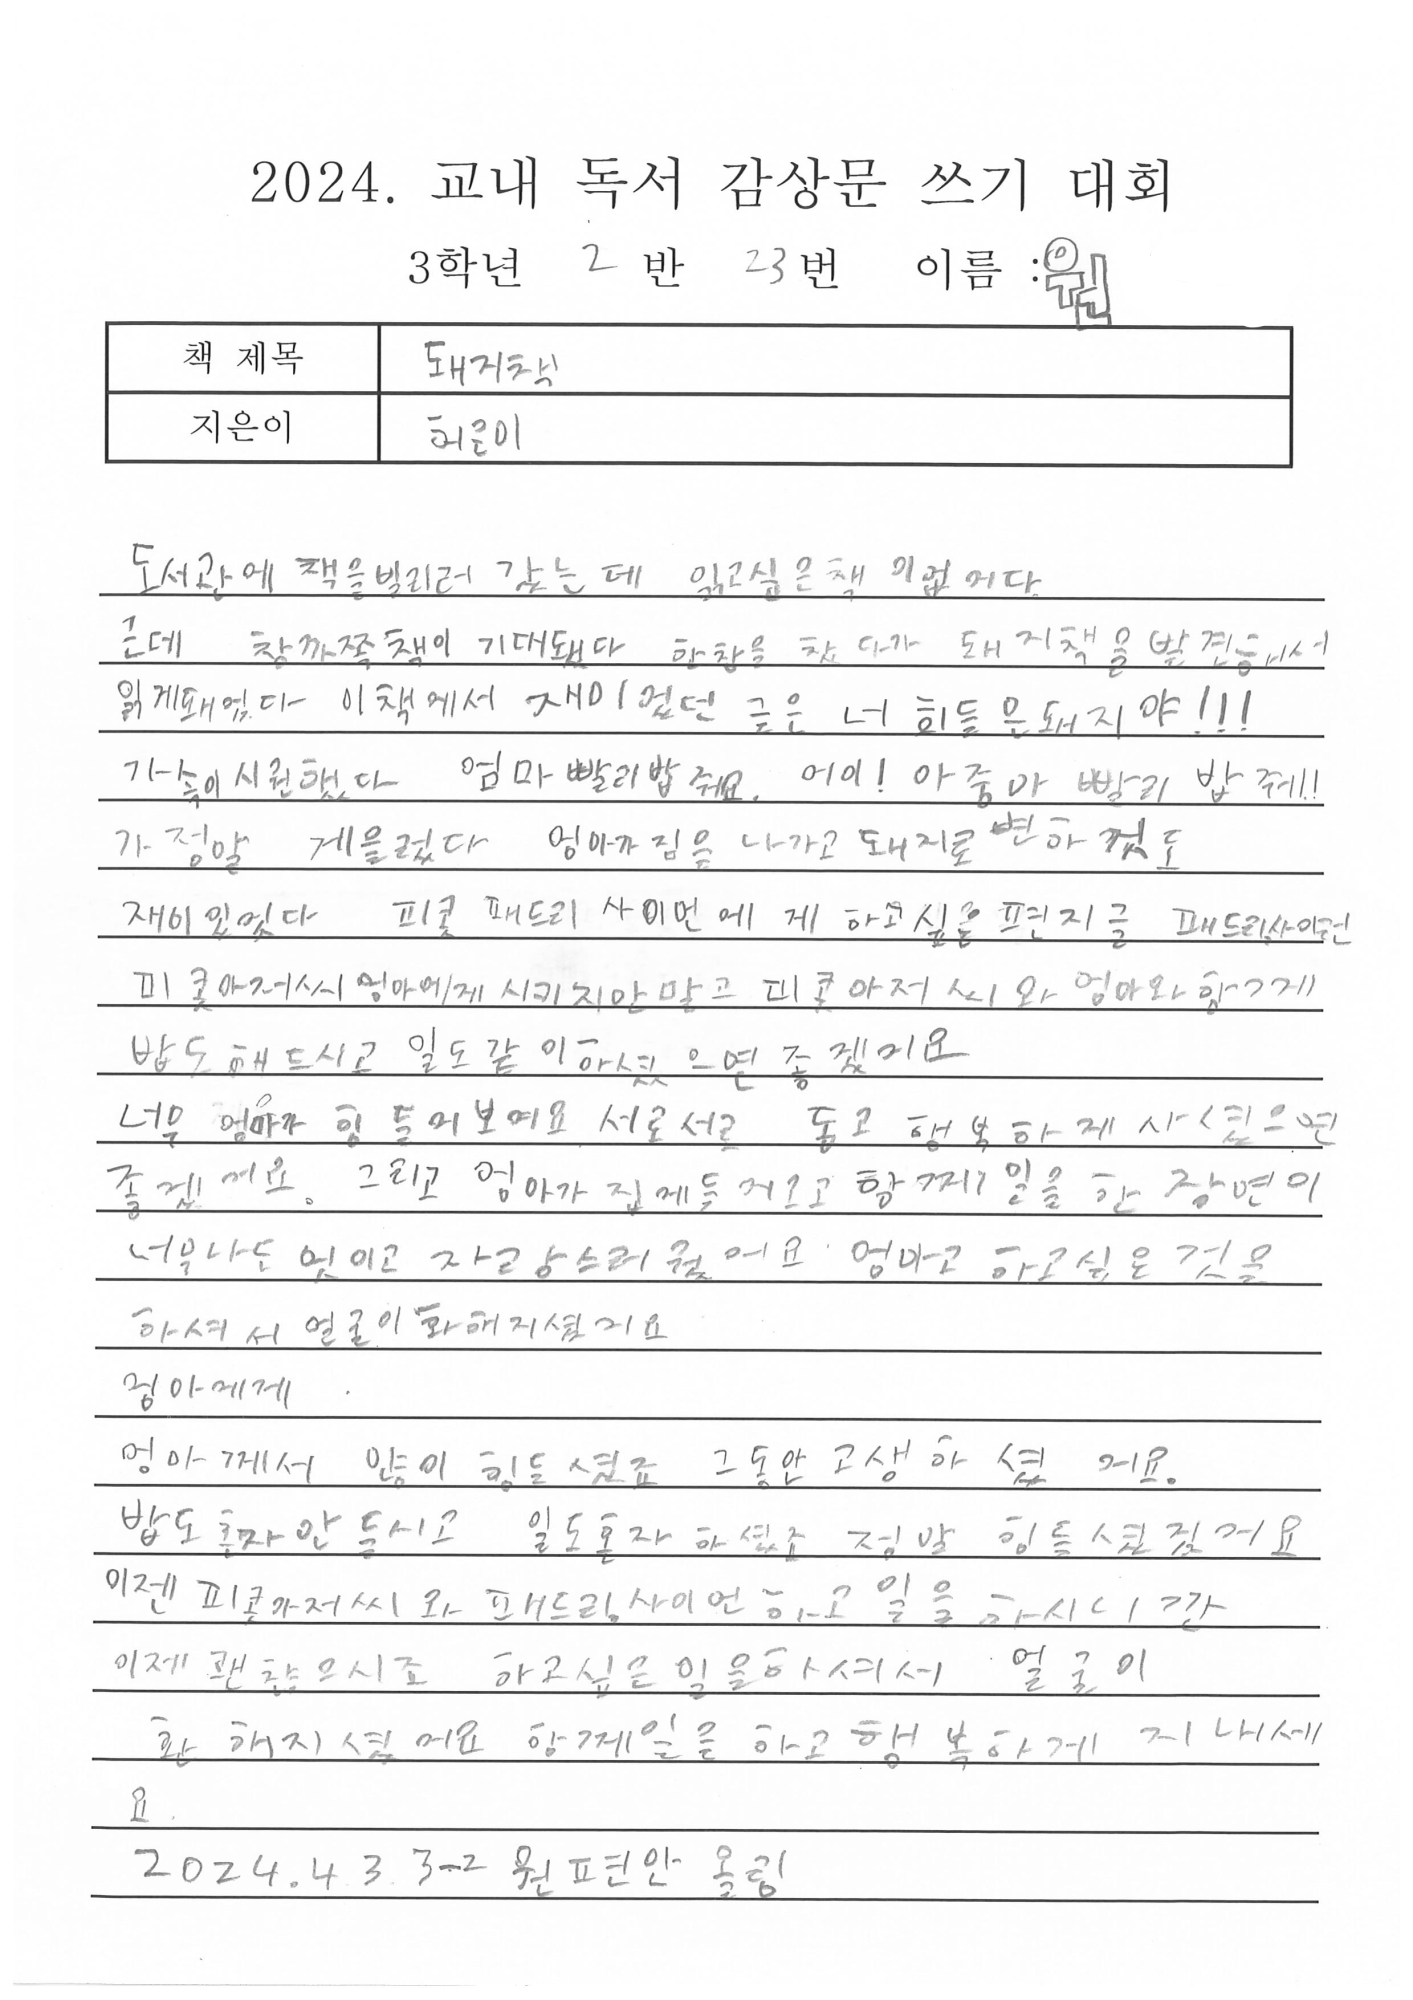 2024. 교내 독서 감상문 쓰기 대회
3학년 2 반 23번 이름 : 원
책 제목 돼지책
지은이 허은미
도서관에 책을빌리러 갔는데 읽고싶은책 이없어다
근데 책이 기대됐다 한참을 찼다가 돼지책을발견해서
읽게돼었다 이책에서 재미었던 글은 너희들은돼지야!!!
가속이시원했다 엄마빨리밥줘요. 어이! 아줌마 빨리 밥줘!!
가정말 게을렀다 엄마가짐을 나가고돼지로변하것도
재미있었다 피콧 패트릭 사이먼에게 하고싶은편지글
피콧아저씨 엄마에게시키지만말고 피콧아저씨와 엄마와함께
밥도해드시고 일도같이하셨으면좋겠어요
너무 엄마가 힘들어보여요 서로서로 돕고 행복하게사셨으면
좋겠어요. 그리고 엄마가집에들어오고함께일을한장면이
너무나도멋이고 자랑스러웠어요 엄마고 하고싶은것을
하셔서얼굴이환해지셨어요
엄마에게
엄마께서 많이힘들셨죠 그동안고생하셨어요.
밥도혼자만들시고 일도혼자하셨죠 정말 힘들셨겠어요
이젠피콧아저씨와 패트릭사이먼하고일을하시니깐
이제괜찮으시죠 하고싶은일을하셔서 얼굴이
환해지셨어요함께일을하고행복하게지내세
요.
2024.4.3 3-2 원 올림